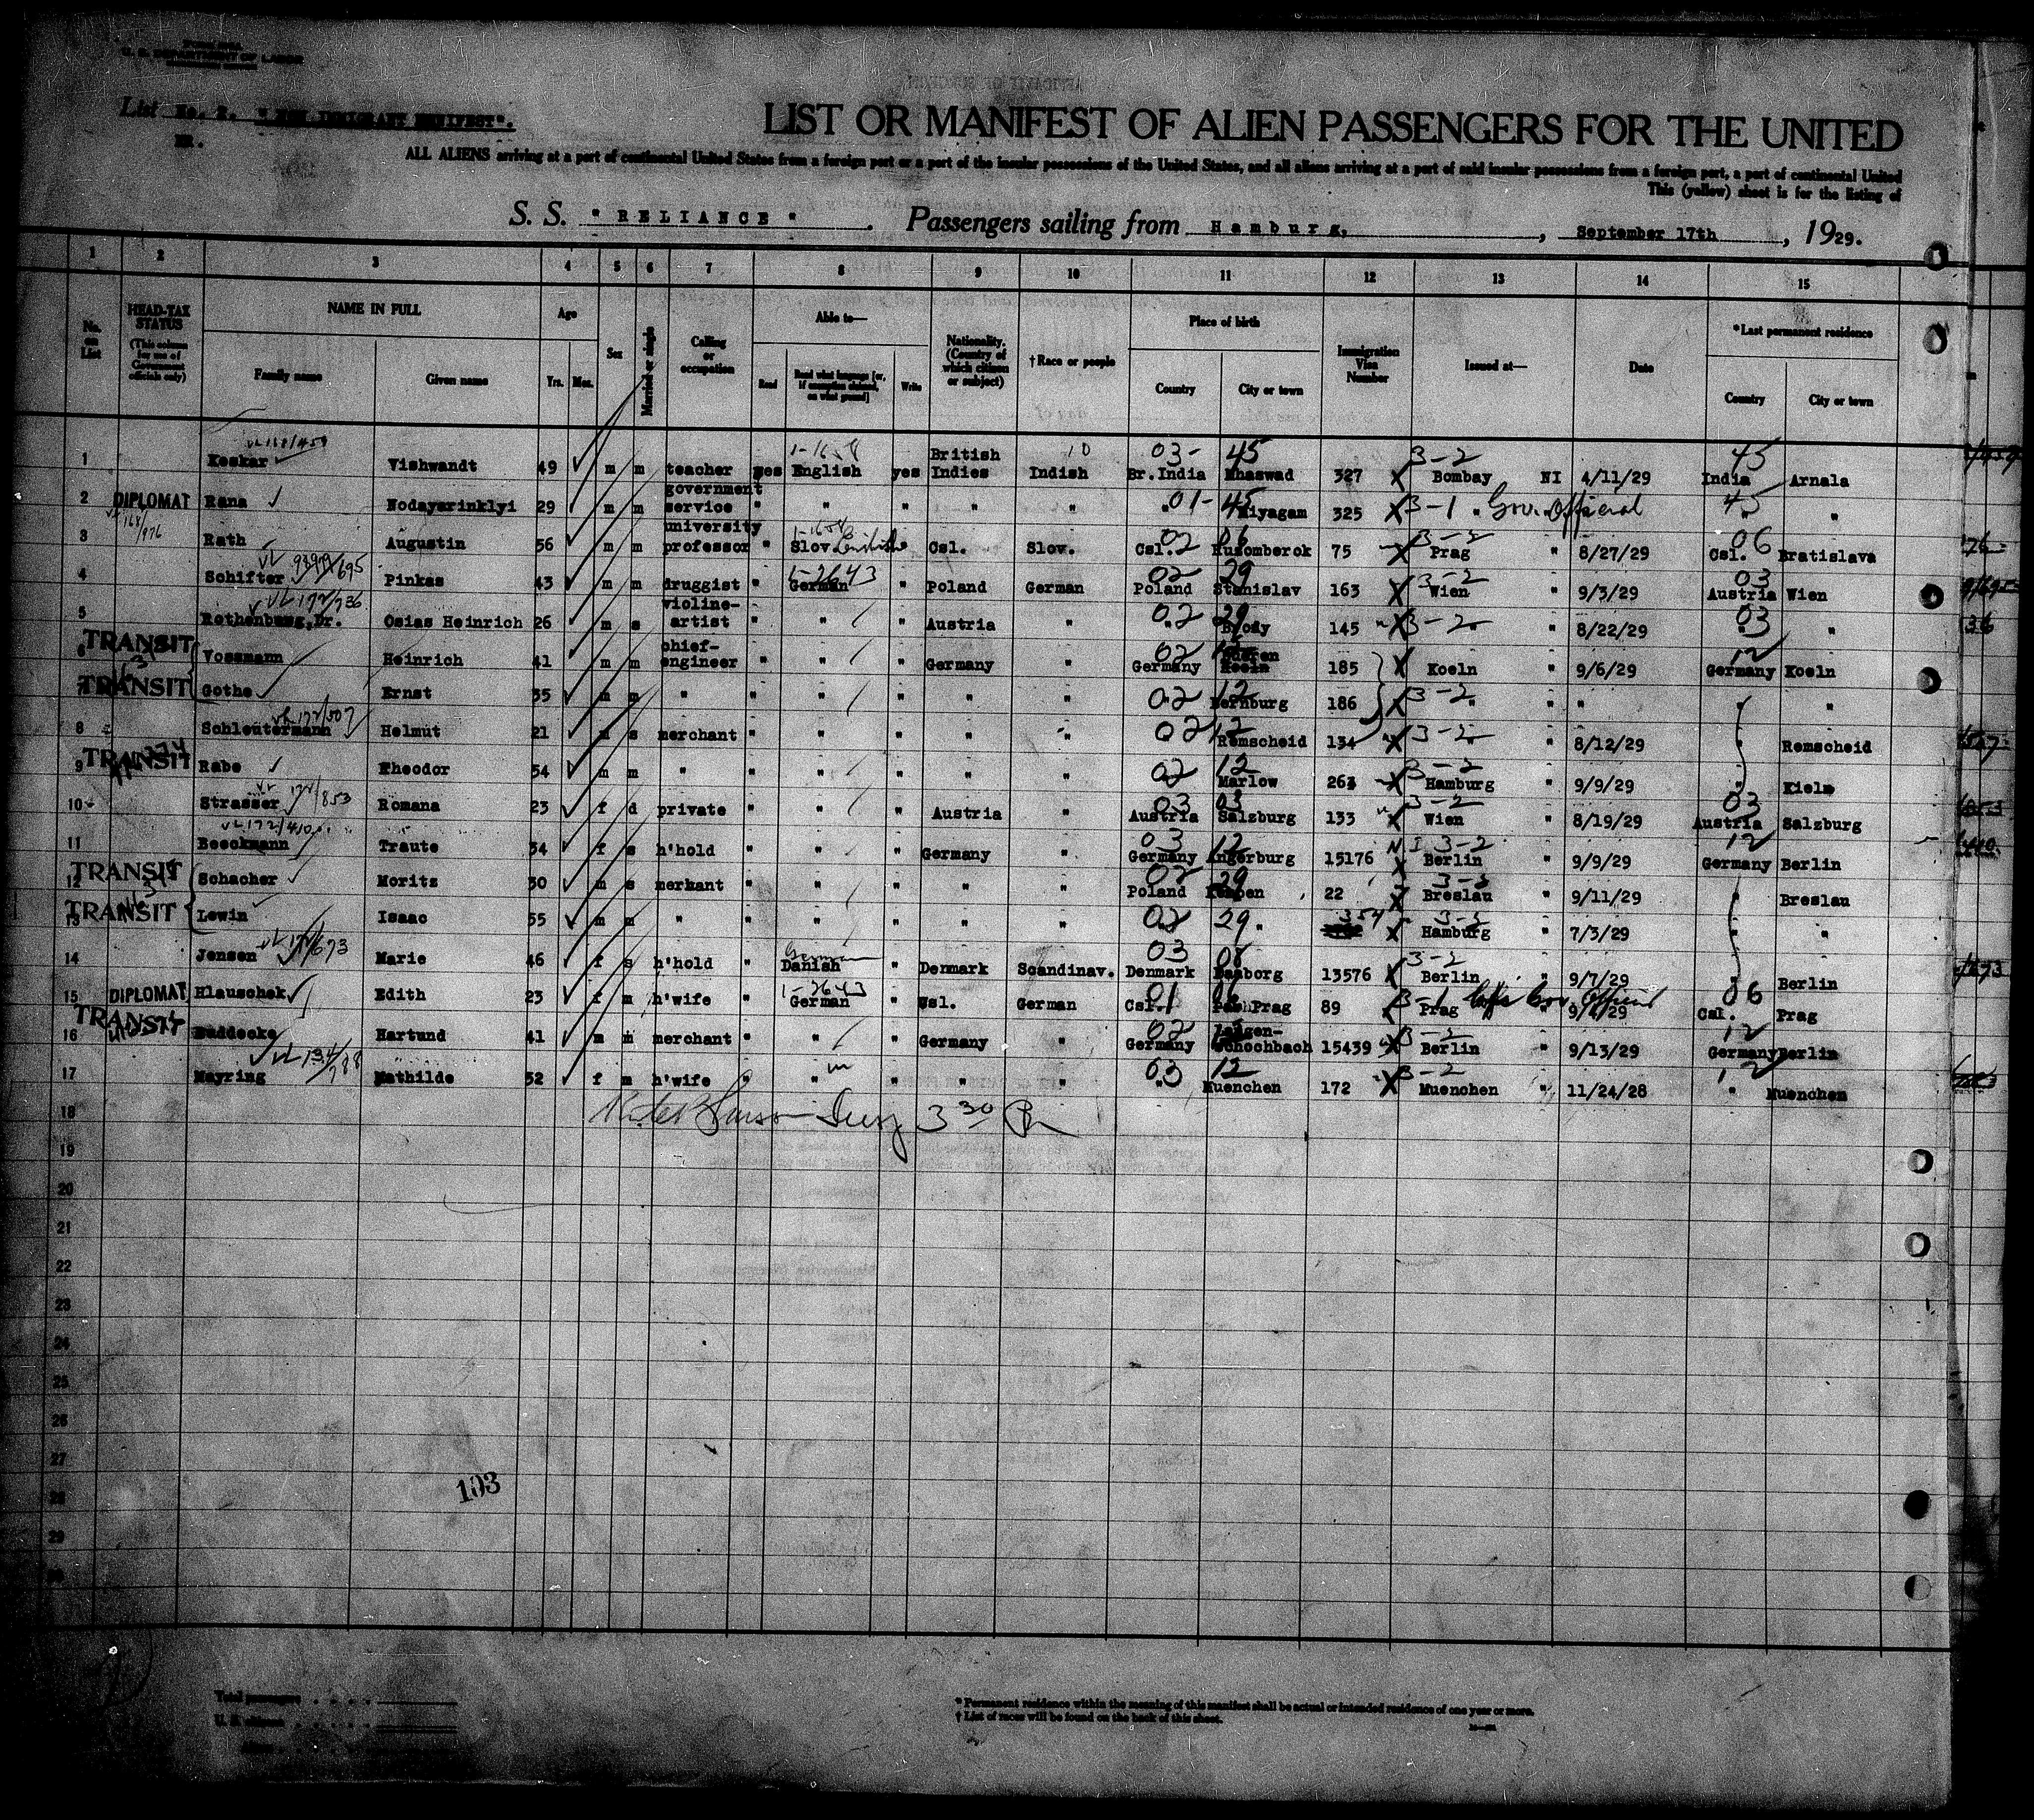 U. S. DEPARTMENT OF LABOR
List No. 2. "NON IMMIGRANT MANIFEST".
LIST OR MANIFEST OF ALIEN PASSENGERS FOR THE UNITED
ALL ALIENS arriving at a port of continental United States from a foreign port or a port of the insular possessions of the United States, and all aliens arriving at a port of said insular possessions from a foreign port, a port of continental United
This (yellow) sheet is for the listing of
S. S. "RELIANCE". Passengers sailing from Hamburg, September 17th, 1929.
1 2 3 4 5 6 7 8 9 10 11 12 13 14 15
No. on List
HEAD-TAX STATUS (This column for use of Government officials only)
NAME IN FULL
Family name Given name
Age
Yrs. Mos.
Sex
Married or single
Calling or occupation
Able to—
Read Read what language [or, if exemption claimed, on what ground] Write
Nationality. (Country of which citizen or subject)
†Race or people
Place of birth
Country City or town
Immigration Visa Number
Issued at—
Date
*Last permanent residence
Country City or town
1 Keskar Vishwandt 49 m m teacher yes English yes British Indies Indish 03- 45 Br. India Mhaswad 327 3-2 Bombay NI 4/11/29 45 India Arnala
2 DIPLOMAT Rana Nodayarinklyi 29 m m government service " " " " " 01- 45 325 3-1 Gov. Official 45 "
3 Rath Augustin 56 m m university professor " Slov. " Csl. Slov. Csl. 02 06 75 3-2 Prag " 8/27/29 Csl. 06 Bratislava
4 Schifter Pinkas 43 m m druggist " German " Poland German 02 29 Poland Stanislav 163 3-2 Wien " 9/3/29 03 Austria Wien
5 Rothenburg, Dr. Osias Heinrich 26 m s violine-artist " " " Austria " 02 29 " Brody 145 3-2 " " 8/22/29 03 " "
6 TRANSIT Vossmann Heinrich 41 m m chief-engineer " " " Germany " 02 12 Germany 185 Koeln " 9/6/29 12 Germany Koeln
7 TRANSIT Gothe Ernst 35 m m " " " " " " 02 12 Bernburg 186 3-2 " " " " "
8 Schleutermann Helmut 21 m s merchant " " " " " 02 12 Remscheid 134 3-2 " " 8/12/29 " Remscheid
9 TRANSIT Rabe Theodor 54 m m " " " " " " 02 12 Marlow 263 3-2 Hamburg " 9/9/29 " Kiel
10 Strasser Romana 23 f d private " " " Austria " 03 03 Austria Salzburg 133 3-2 Wien " 8/19/29 03 Austria Salzburg
11 Beeckmann Traute 34 f s h'hold " " " Germany " 03 12 Germany Angerburg 15176 NI 3-2 Berlin " 9/9/29 12 Germany Berlin
12 TRANSIT Schacher Moritz 30 m s merkant " " " " " 02 29 Poland 22 3-3 Breslau " 9/11/29 " Breslau
13 TRANSIT Lewin Isaac 55 m m " " " " " " 02 29 " 354 3-3 Hamburg " 7/3/29 " "
14 Jensen Marie 46 f s h'hold " German Danish " Denmark Scandinav. 03 08 Denmark Faaborg 13576 3-2 Berlin " 9/7/29 " Berlin
15 DIPLOMAT Hlauschek Edith 23 f m h'wife " 1-2643 German " Csl. German 01 06 Csl. Prag 89 3-1 Prag Gov. Official " 9/4/29 06 Csl. Prag
16 TRANSIT Buddecke Hartund 41 m m merchant " " " Germany " 02 12 Germany 15439 3-2 Berlin " 9/13/29 12 Germany Berlin
17 Mayring Mathilde 52 f m h'wife " " " " " 03 12 " Muenchen 172 3-2 Muenchen " 11/24/28 12 " Muenchen
18
19
20
21
22
23
24
25
26
27
28
29
30
103
Total passengers
U. S. citizens
* Permanent residence within the meaning of this manifest shall be actual or intended residence of one year or more.
† List of races will be found on the back of this sheet.